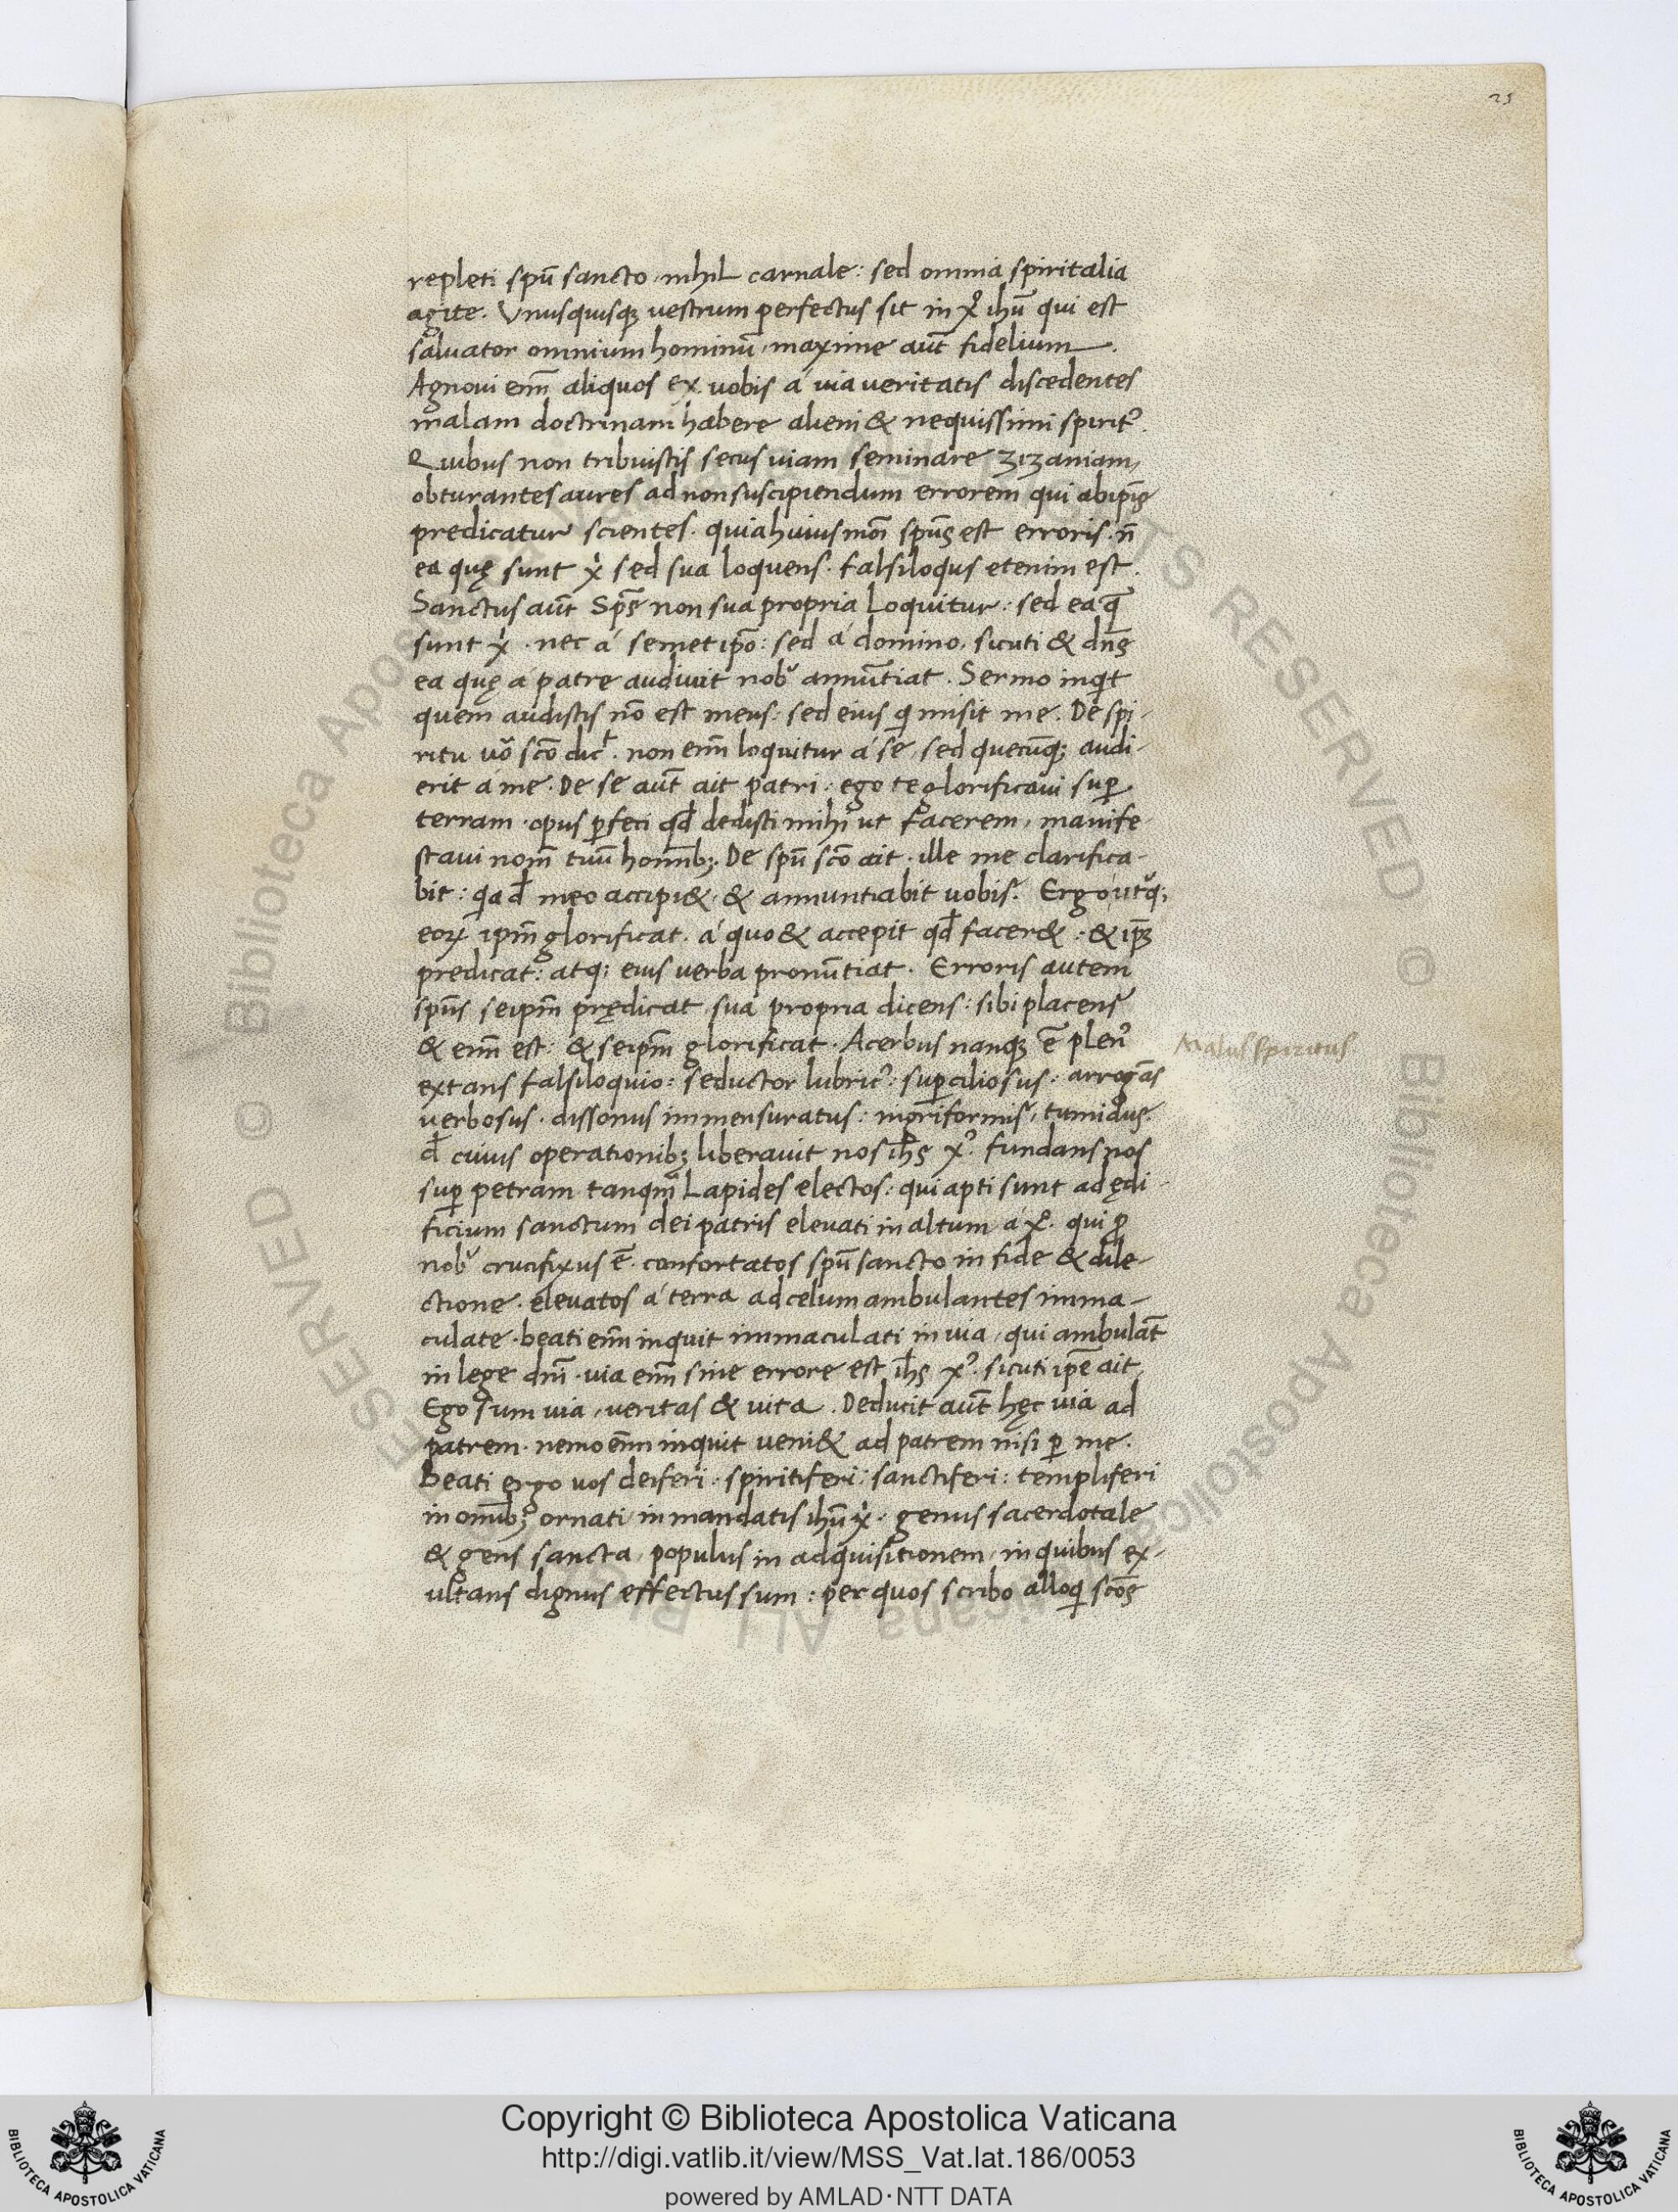 25
repleti spū sancto, nihil carnale: sed omnia spiritalia
agite. Vnusquisq; uestrum perfectus sit in xp̄o ihū qui est
saluator omnium hominū, maxime aūt fidelium.
Agnoui enī aliquos ex uobis á uia ueritatis discedentes
malam doctrinam habere alieni & nequissimi spirit᾿.
Quibus non tribuistis secus uiam seminare zizaniam,
obturantes aures ad non suscipiendum errorem qui ab ip̄is
predicatur scientes. quia huiusmōi sp̄us est erroris. n̄
ea quę sunt x̄i sed sua loquens. falsiloqus etenim est.
Sanctus aūt Sp̄s non sua propria loquitur: sed ea q̄
sunt x̄i. nec á semetip̄o: sed á domino. sicuti & dn̄s
ea quę á patre audiuit nob᾿ annūtiat. Sermo inqit
quem audistis nō est meus: sed eius qi misit me. De spi-
ritu uō sc̄o dic᾿. non enī loquitur á se, sed quecūq; audi-
erit á me. De se aūt ait patri: ego te glorificaui sup̄
terram. opus p̄feci qd̄ dedisti mihi ut facerem, manife
staui nom̄ tuū homīb;. De spū sc̄o ait. ille me clarifica-
bit: qia d̄ meo accipi&. & annuntiabit uobis. Ergo utq᾿;
eoꝝ ip̄m glorificat. á quo & accepit qd̄ facer&: & ip̄ꝫ
predicat: atq; eius uerba pronūtiat. Erroris autem
sp̄us seip̄m prędicat sua propria dicens: sibi placens
& enī est: & seip̄m glorificat. Acerbus nanq; ē plen᾿
extans falsiloquio: seductor lubric᾿: sup̄ciliosus: arrogās
uerbosus. dissonus immensuratus: nigriformis, tumidus.
d̄ cuius operationib; liberauit nos ih̄s x᾿. fundans nos
sup̄ petram tanqm̄ lapides electos: qui apti sunt ad ędi-
ficium sanctum dei patris eleuati in altum á x̄o. qui ꝓ
nob᾿ crucifixus ē. confortatos spū sancto in fide & dile-
ctione. eleuatos á terra ad celum ambulantes imma-
culate. beati enī inquit immaculati in uia, qui ambulāt
in lege dnī. uia enī sine errore est ih̄s x᾿. sicuti ip̄e ait.
Ego sum uia, ueritas & uita. Deducit aūt hęc uia ad
patrem. nemo enī inquit ueni& ad patrem nisi p̄ me.
Beati ergo uos deiferi: spiritiferi: sanctiferi: templiferi
in omīb; ornati in mandatis ihū x̄i. genus sacerdotale
& gens sancta, populus in adquisitionem, in quibus ex-
ultans dignus effectus sum: per quos scribo alloqi sc̄os
Malus spiritus
Copyright © Biblioteca Apostolica Vaticana
http://digi.vatlib.it/view/MSS_Vat.lat.186/0053
powered by AMLAD·NTT DATA
BIBLIOTECA APOSTOLICA VATICANA
BIBLIOTECA APOSTOLICA VATICANA